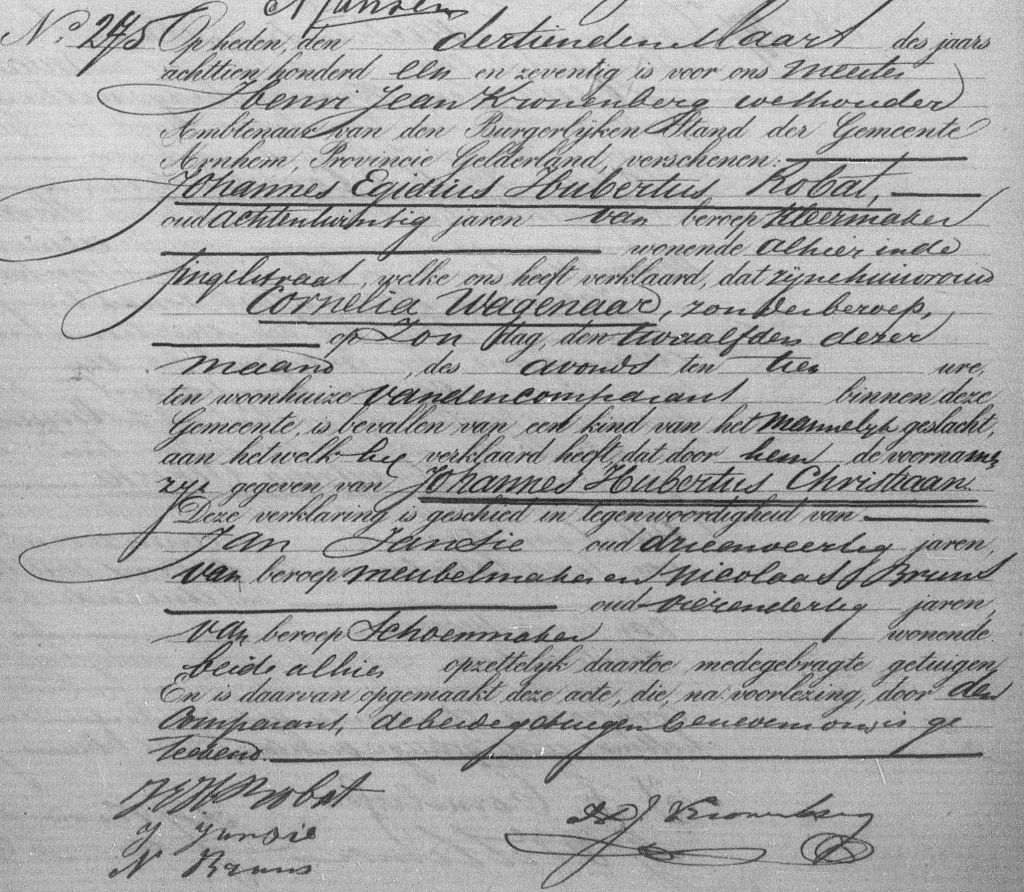 N Jansen
No. 245 Op heden, den dertienden Maart des jaars
achttien honderd een en zeventig is voor ons Meester
Henri Jean Kronenberg wethouder
Ambtenaar van den Burgerlijken Stand der Gemeente
Arnhem, Provincie Gelderland, verschenen:
Johannes Egidius Hubertus Robat,
oud achtentwintig jaren van beroep kleermaker
wonende alhier in de
singelstraat, welke ons heeft verklaard, dat zijne huisvrouw
Cornelia Wagenaar, zonder beroep,
op Zondag, den twaalfden dezer
maand, des avonds ten tien ure,
ten woonhuize van den comparant binnen deze
Gemeente, is bevallen van een kind van het mannelijk geslacht,
aan hetwelk hij verklaard heeft, dat door hem de voornamen
zijn gegeven van Johannes Hubertus Christiaan.
Deze verklaring is geschied in tegenwoordigheid van
Jan Jansie oud drieenveertig jaren,
van beroep meubelmaker en Nicolaas Bruns
oud vierendertig jaren,
van beroep Schoenmaker wonende
beide alhier opzettelijk daartoe medegebragte getuigen.
En is daarvan opgemaakt deze acte, die, na voorlezing, door den
Comparant, de beide getuigen benevens ons is ge
teekend.
J.E.H Robat
J Jansie
N Bruns
H J Kronenberg